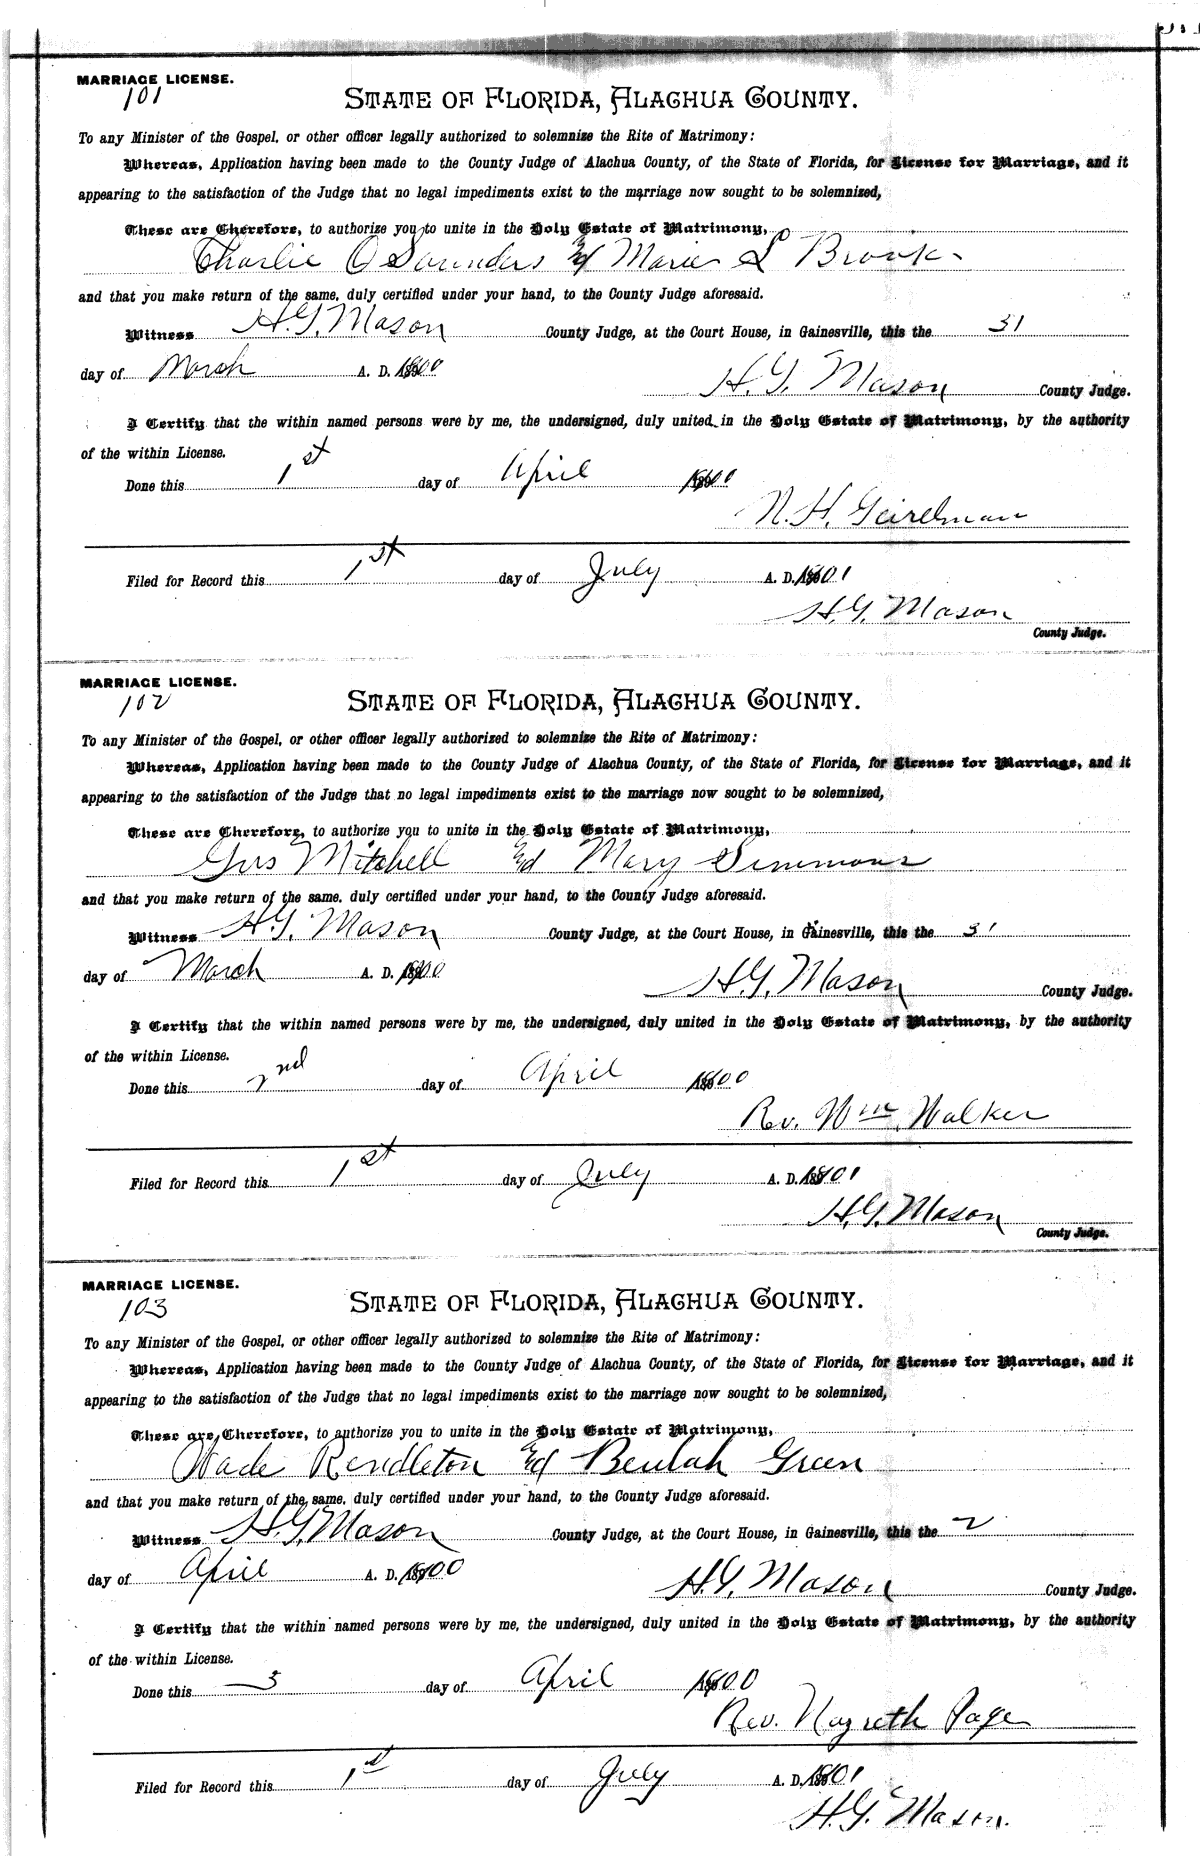 MARRIAGE LICENSE.
101
STATE OF FLORIDA, ALACHUA COUNTY.
To any Minister of the Gospel, or other officer legally authorized to solemnize the Rite of Matrimony:
Whereas, Application having been made to the County Judge of Alachua County, of the State of Florida, for License for Marriage, and it
appearing to the satisfaction of the Judge that no legal impediments exist to the marriage now sought to be solemnized,
These are Therefore, to authorize you to unite in the Holy Estate of Matrimony,
Charlie O Saunders & Marie S Brook
and that you make return of the same, duly certified under your hand, to the County Judge aforesaid.
Witness H. G. Mason County Judge, at the Court House, in Gainesville, this the 31
day of March A. D. 1900
H. G. Mason County Judge.
I Certify that the within named persons were by me, the undersigned, duly united in the Holy Estate of Matrimony, by the authority
of the within License.
Done this 1st day of April 1900
N. H.
Filed for Record this 1st day of July A. D. 1901
H. G. Mason
County Judge.
MARRIAGE LICENSE.
102
STATE OF FLORIDA, ALACHUA COUNTY.
To any Minister of the Gospel, or other officer legally authorized to solemnize the Rite of Matrimony:
Whereas, Application having been made to the County Judge of Alachua County, of the State of Florida, for License for Marriage, and it
appearing to the satisfaction of the Judge that no legal impediments exist to the marriage now sought to be solemnized,
These are Therefore, to authorize you to unite in the Holy Estate of Matrimony,
Gus Mitchell & Mary Simmons
and that you make return of the same, duly certified under your hand, to the County Judge aforesaid.
Witness H. G. Mason County Judge, at the Court House, in Gainesville, this the 31
day of March A. D. 1900
H. G. Mason County Judge.
I Certify that the within named persons were by me, the undersigned, duly united in the Holy Estate of Matrimony, by the authority
of the within License.
Done this 2nd day of April 1900
Rev. Wm. Walker
Filed for Record this 1st day of July A. D. 1901
H. G. Mason
County Judge.
MARRIAGE LICENSE.
103
STATE OF FLORIDA, ALACHUA COUNTY.
To any Minister of the Gospel, or other officer legally authorized to solemnize the Rite of Matrimony:
Whereas, Application having been made to the County Judge of Alachua County, of the State of Florida, for License for Marriage, and it
appearing to the satisfaction of the Judge that no legal impediments exist to the marriage now sought to be solemnized,
These are Therefore, to authorize you to unite in the Holy Estate of Matrimony,
Wade Rendleton & Beulah Green
and that you make return of the same, duly certified under your hand, to the County Judge aforesaid.
Witness H. G. Mason County Judge, at the Court House, in Gainesville, this the 2
day of April A. D. 1900
H. G. Mason County Judge.
I Certify that the within named persons were by me, the undersigned, duly united in the Holy Estate of Matrimony, by the authority
of the within License.
Done this 3 day of April 1900
Rev. Nazreth Page
Filed for Record this 1st day of July A. D. 1901
H. G. Mason.